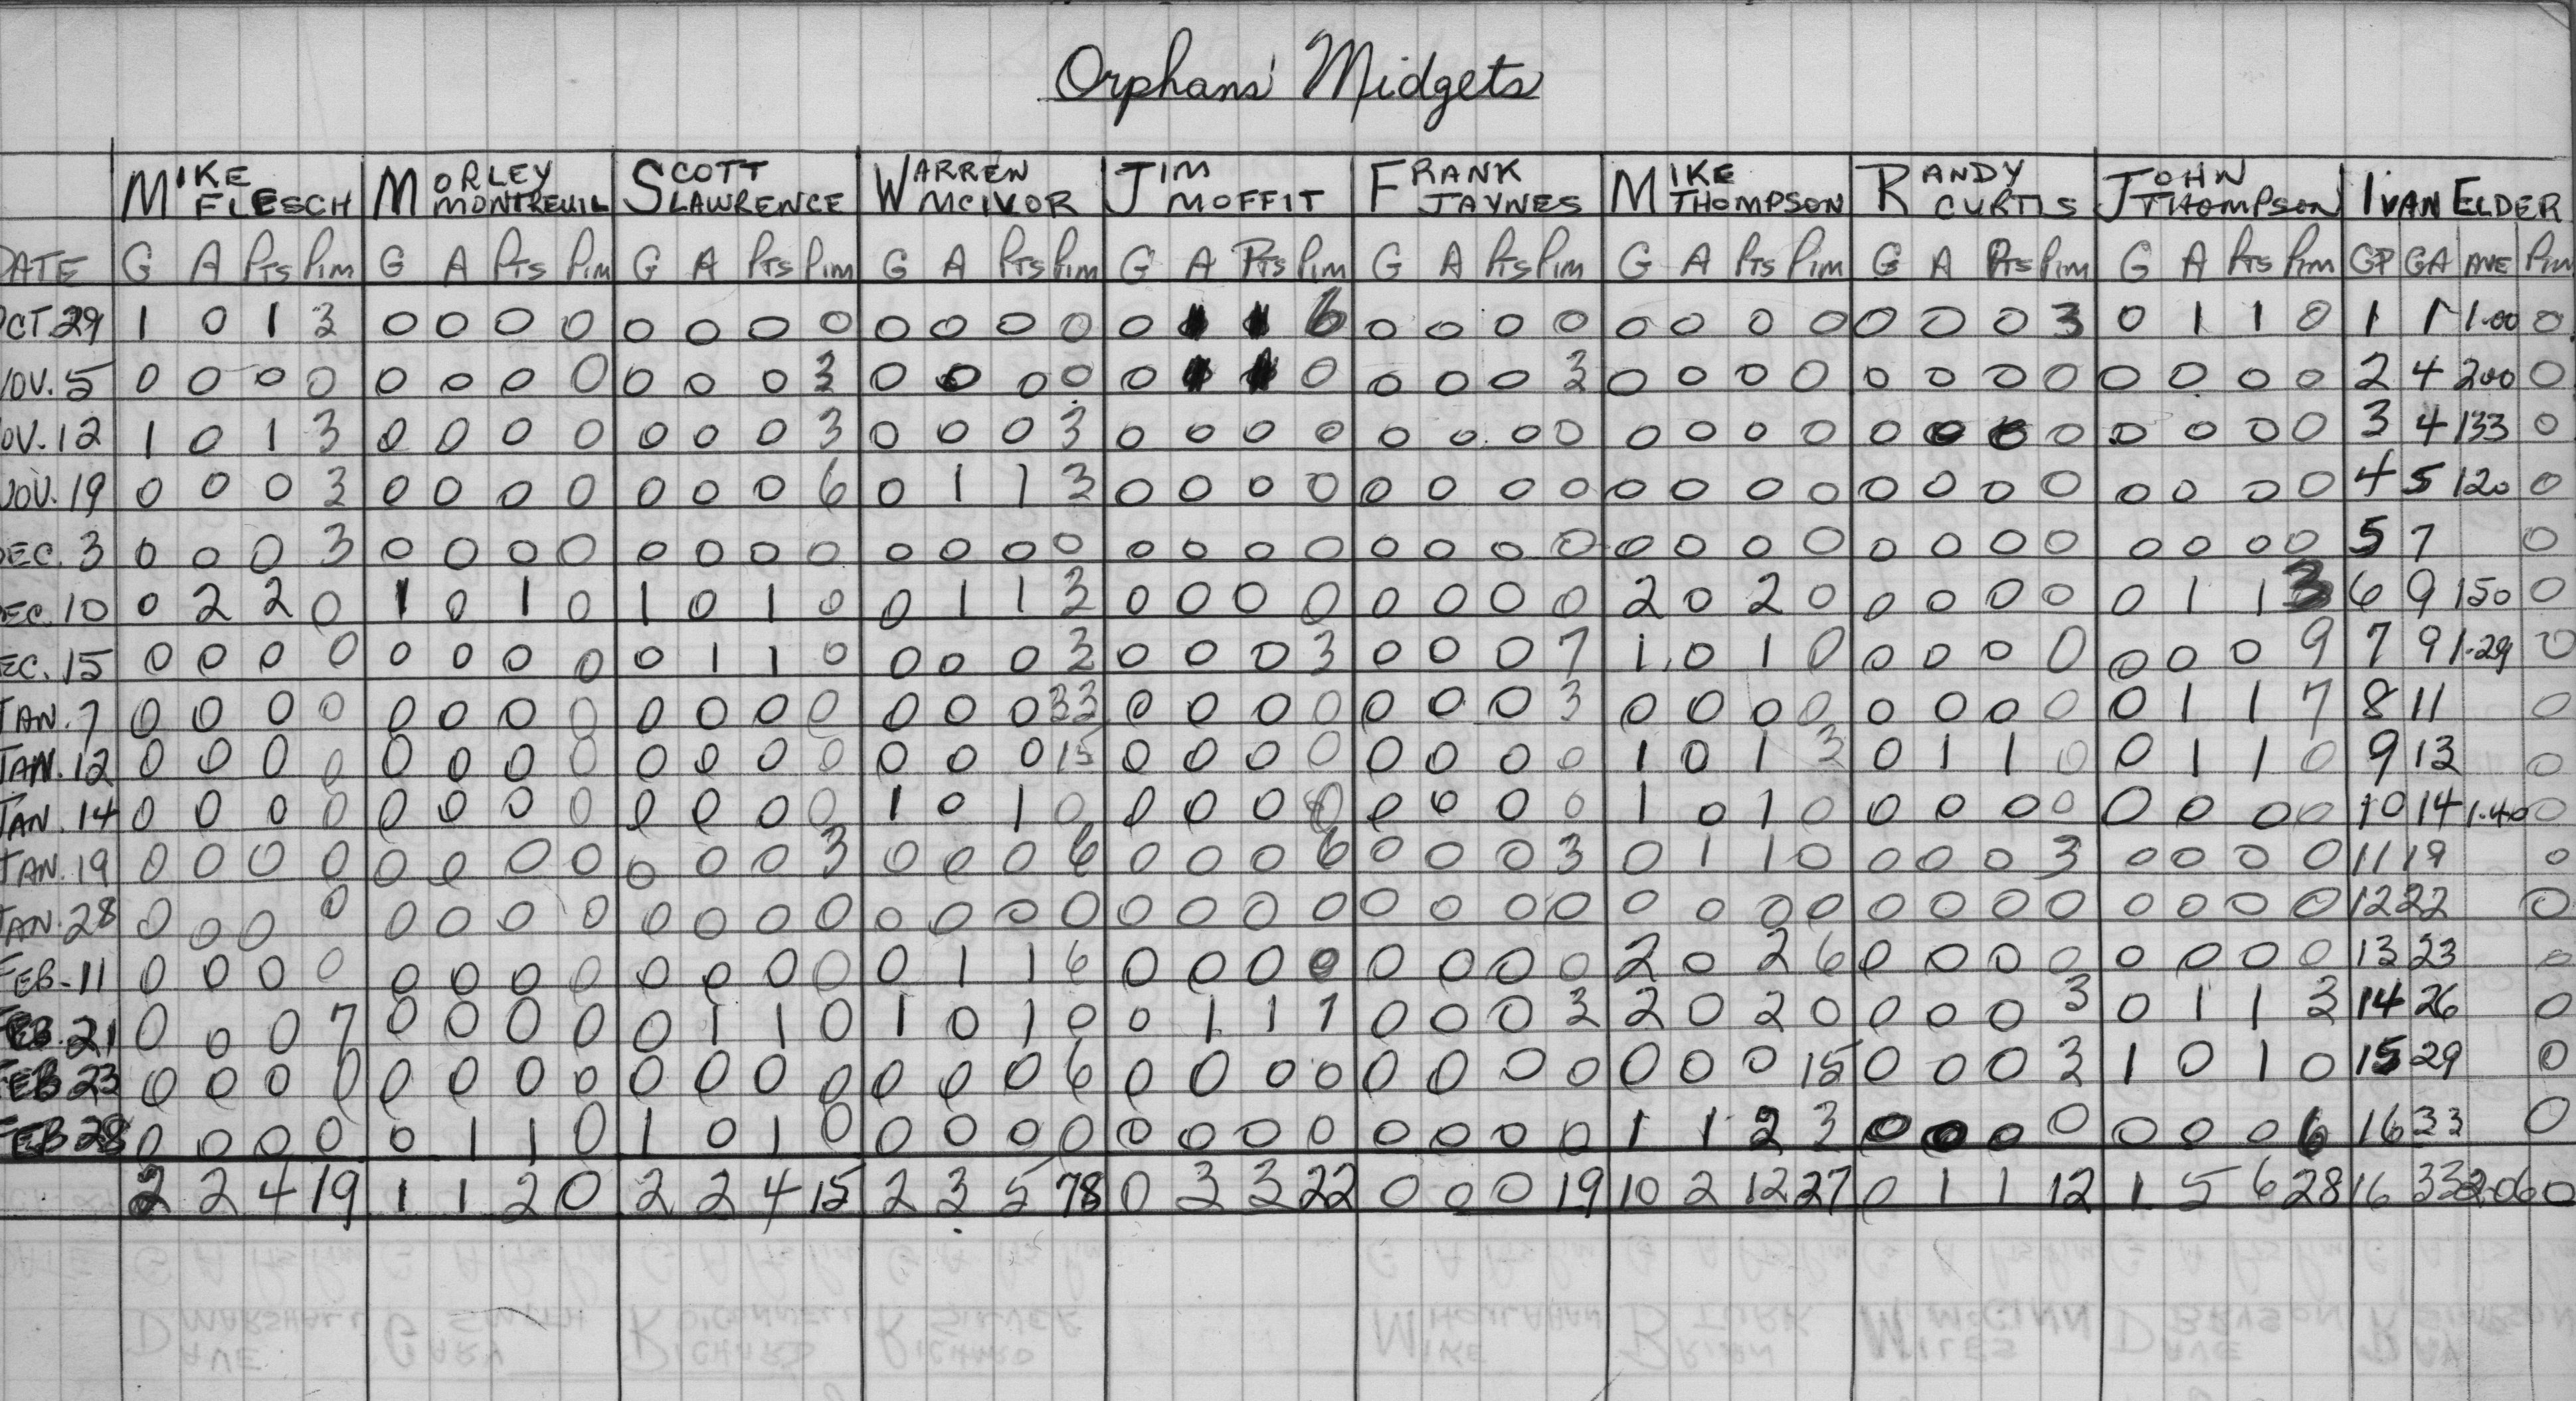 Orphans' Midgets
MIKE FLESCH MORLEY MONTREUIL SCOTT LAWRENCE WARREN MCIVOR JIM MOFFIT FRANK JAYNES MIKE THOMPSON RANDY CURTIS JOHN THOMPSON IVAN ELDER
DATE G A Pts Pim G A Pts Pim G A Pts Pim G A Pts Pim G A Pts Pim G A Pts Pim G A Pts Pim G A Pts Pim G A Pts Pim GP GA AVE Pim
OCT. 29 1 0 1 3 0 0 0 0 0 0 0 0 0 0 0 0 0 1 1 6 0 0 0 0 0 0 0 0 0 0 0 3 0 1 1 0 1 1 1.00 0
NOV. 5 0 0 0 0 0 0 0 0 0 0 0 3 0 0 0 0 0 1 1 0 0 0 0 3 0 0 0 0 0 0 0 0 0 0 0 0 2 4 200 0
NOV. 12 1 0 1 3 0 0 0 0 0 0 0 3 0 0 0 3 0 0 0 0 0 0 0 0 0 0 0 0 0 0 0 0 0 0 0 0 3 4 133 0
NOV. 19 0 0 0 3 0 0 0 0 0 0 0 6 0 1 1 3 0 0 0 0 0 0 0 0 0 0 0 0 0 0 0 0 0 0 0 0 4 5 120 0
DEC. 3 0 0 0 3 0 0 0 0 0 0 0 0 0 0 0 0 0 0 0 0 0 0 0 0 0 0 0 0 0 0 0 0 0 0 0 0 5 7 0
DEC. 10 0 2 2 0 1 0 1 0 1 0 1 0 0 1 1 3 0 0 0 0 0 0 0 0 2 0 2 0 0 0 0 0 0 1 1 3 6 9 150 0
DEC. 15 0 0 0 0 0 0 0 0 0 1 1 0 0 0 0 3 0 0 0 3 0 0 0 7 1 0 1 0 0 0 0 0 0 0 0 9 7 9 1.29 0
JAN. 7 0 0 0 0 0 0 0 0 0 0 0 0 0 0 0 33 0 0 0 0 0 0 0 3 0 0 0 0 0 0 0 0 0 1 1 7 8 11 0
JAN. 12 0 0 0 0 0 0 0 0 0 0 0 0 0 0 0 15 0 0 0 0 0 0 0 0 1 0 1 3 0 1 1 0 0 1 1 0 9 13 0
JAN. 14 0 0 0 0 0 0 0 0 0 0 0 0 1 0 1 0 0 0 0 0 0 0 0 0 1 0 1 0 0 0 0 0 0 0 0 0 10 14 1.40 0
JAN. 19 0 0 0 0 0 0 0 0 0 0 0 3 0 0 0 6 0 0 0 6 0 0 0 3 0 1 1 0 0 0 0 3 0 0 0 0 11 19 0
JAN. 28 0 0 0 0 0 0 0 0 0 0 0 0 0 0 0 0 0 0 0 0 0 0 0 0 0 0 0 0 0 0 0 0 0 0 0 0 12 22 0
FEB-11 0 0 0 0 0 0 0 0 0 0 0 0 0 1 1 6 0 0 0 0 0 0 0 0 2 0 2 6 0 0 0 0 0 0 0 0 13 23 0
FEB. 21 0 0 0 7 0 0 0 0 0 1 1 0 1 0 1 0 0 1 1 7 0 0 0 3 2 0 2 0 0 0 0 3 0 1 1 3 14 26 0
FEB 23 0 0 0 0 0 0 0 0 0 0 0 0 0 0 0 6 0 0 0 0 0 0 0 0 0 0 0 15 0 0 0 3 1 0 1 0 15 29 0
FEB 28 0 0 0 0 0 1 1 0 1 0 1 0 0 0 0 0 0 0 0 0 0 0 0 0 1 1 2 3 0 0 0 0 0 0 0 6 16 33 0
2 2 4 19 1 1 2 0 2 2 4 15 2 3 5 78 0 3 3 22 0 0 0 19 10 2 12 27 0 1 1 12 1 5 6 28 16 33 2.06 0